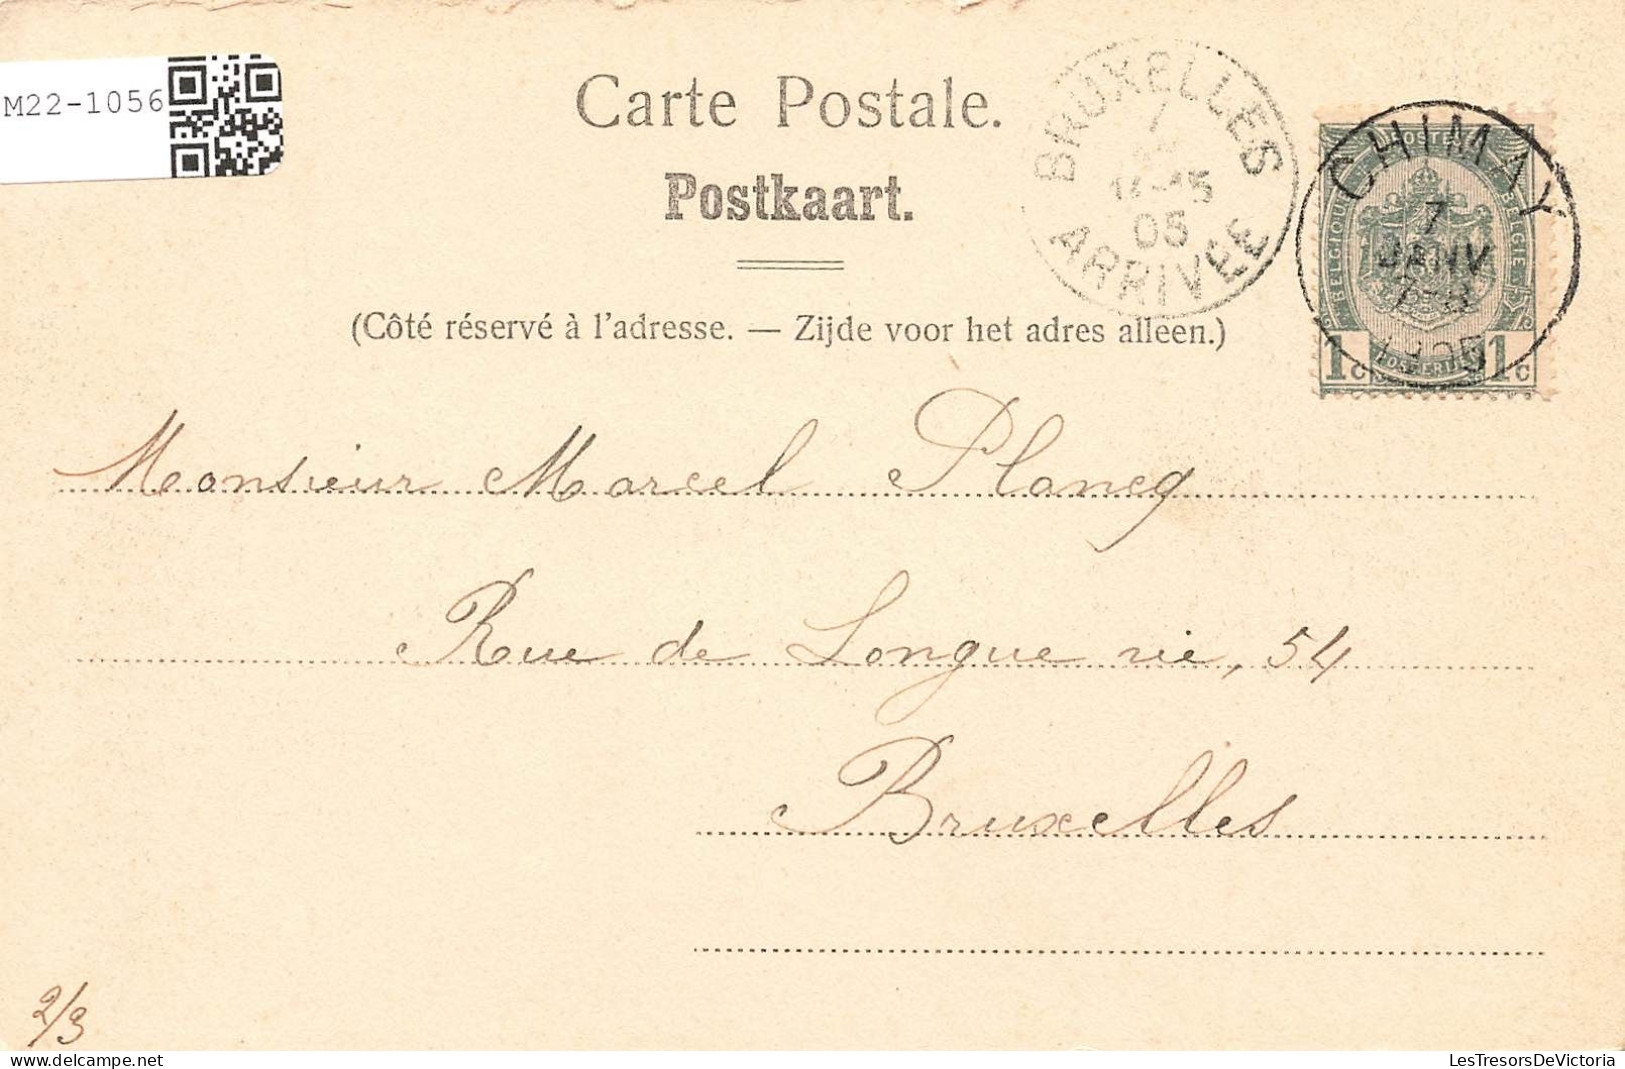 M22-1056
Carte Postale.
Postkaart.
(Côté réservé à l'adresse. — Zijde voor het adres alleen.)
BRUXELLES
7
14-15
05
ARRIVÉE
CHIMAY
7
JANV
1905
POSTES
BELGIQUE
BELGIE
POSTERIJEN
1 C
1 C
Monsieur Marcel Plancq
Rue de Longue vie, 54
Bruxelles
2/3
LesTresorsDeVictoria